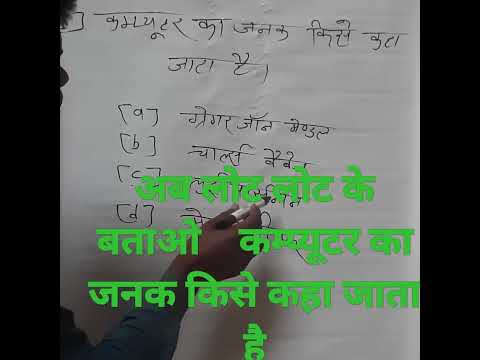 कम्प्यूटर का जनक किसे कहा
जाता है।
[a] ग्रेगर जॉन मेण्डल
[b] चार्ल्स बैबेज
[c]
[d]
अब लोट लोट के
बताओ कम्प्यूटर का
जनक किसे कहा जाता
है